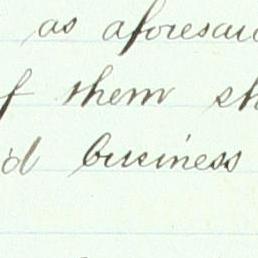 as aforesaid
of them sh
id business